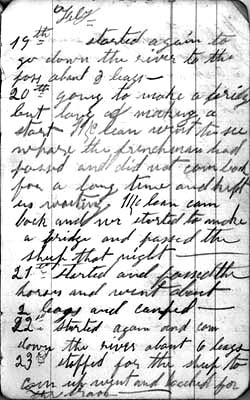 Feby
19th started again to
go down the river to the
pass about 3 leags —
20th going to make a bridge
but long of making a
start McLean went to see
where the frenchman had
passed and did not com back
for a long time and kept
us waiting McLean cam
back and we started to make
a bridge and passed the
sheep that night —
21st started and passed the
horses and went about
2 leags and camped —
22nd started again and com
down the river about 6 leags
23rd stopped for the sheep to
com up went and looked for